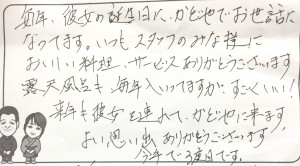 毎年、彼女の誕生日に、かどやでお世話に
なってます。いつもスタッフのみな様に
おいしい料理、サービスありがとうございます
露天風呂も、毎年入ってますが、すごくいい!
来年も彼女を連れて、かどやに来ます
よい思い出ありがとうございます
今年で3度目です。